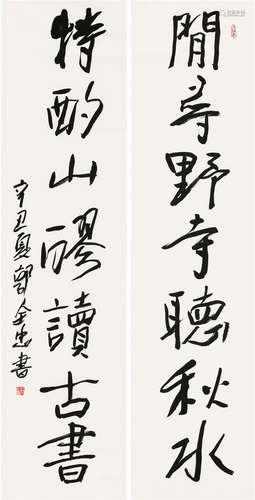 閒尋野寺聽秋水
特酌山醪讀古書
辛丑夏郭金忠書